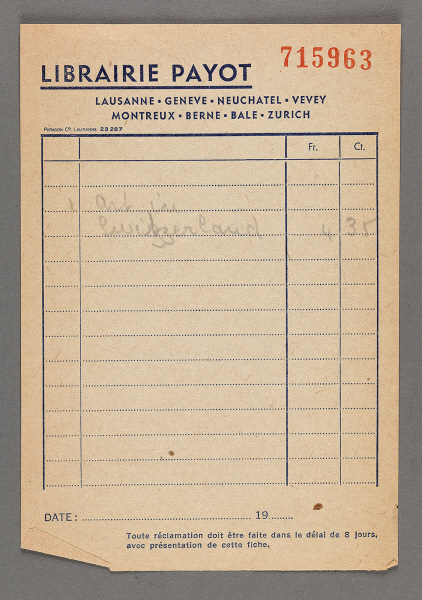 715963
LIBRAIRIE PAYOT
LAUSANNE • GENEVE • NEUCHATEL • VEVEY
MONTREUX • BERNE • BALE • ZURICH
PARAGON C° LAUSANNE 23287
Fr. Ct.
1 Art in
Switzerland 4 35
DATE : 19
Toute réclamation doit être faite dans le délai de 8 jours,
avec présentation de cette fiche.